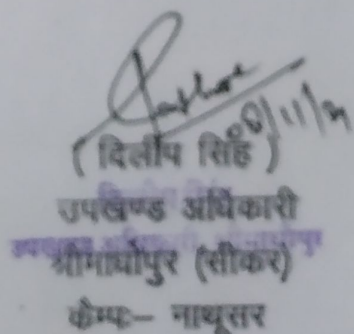 (दिलीप सिंह)
उपखण्ड अधिकारी
श्रीमाधोपुर (सीकर)
कैम्प:– नाथूसर